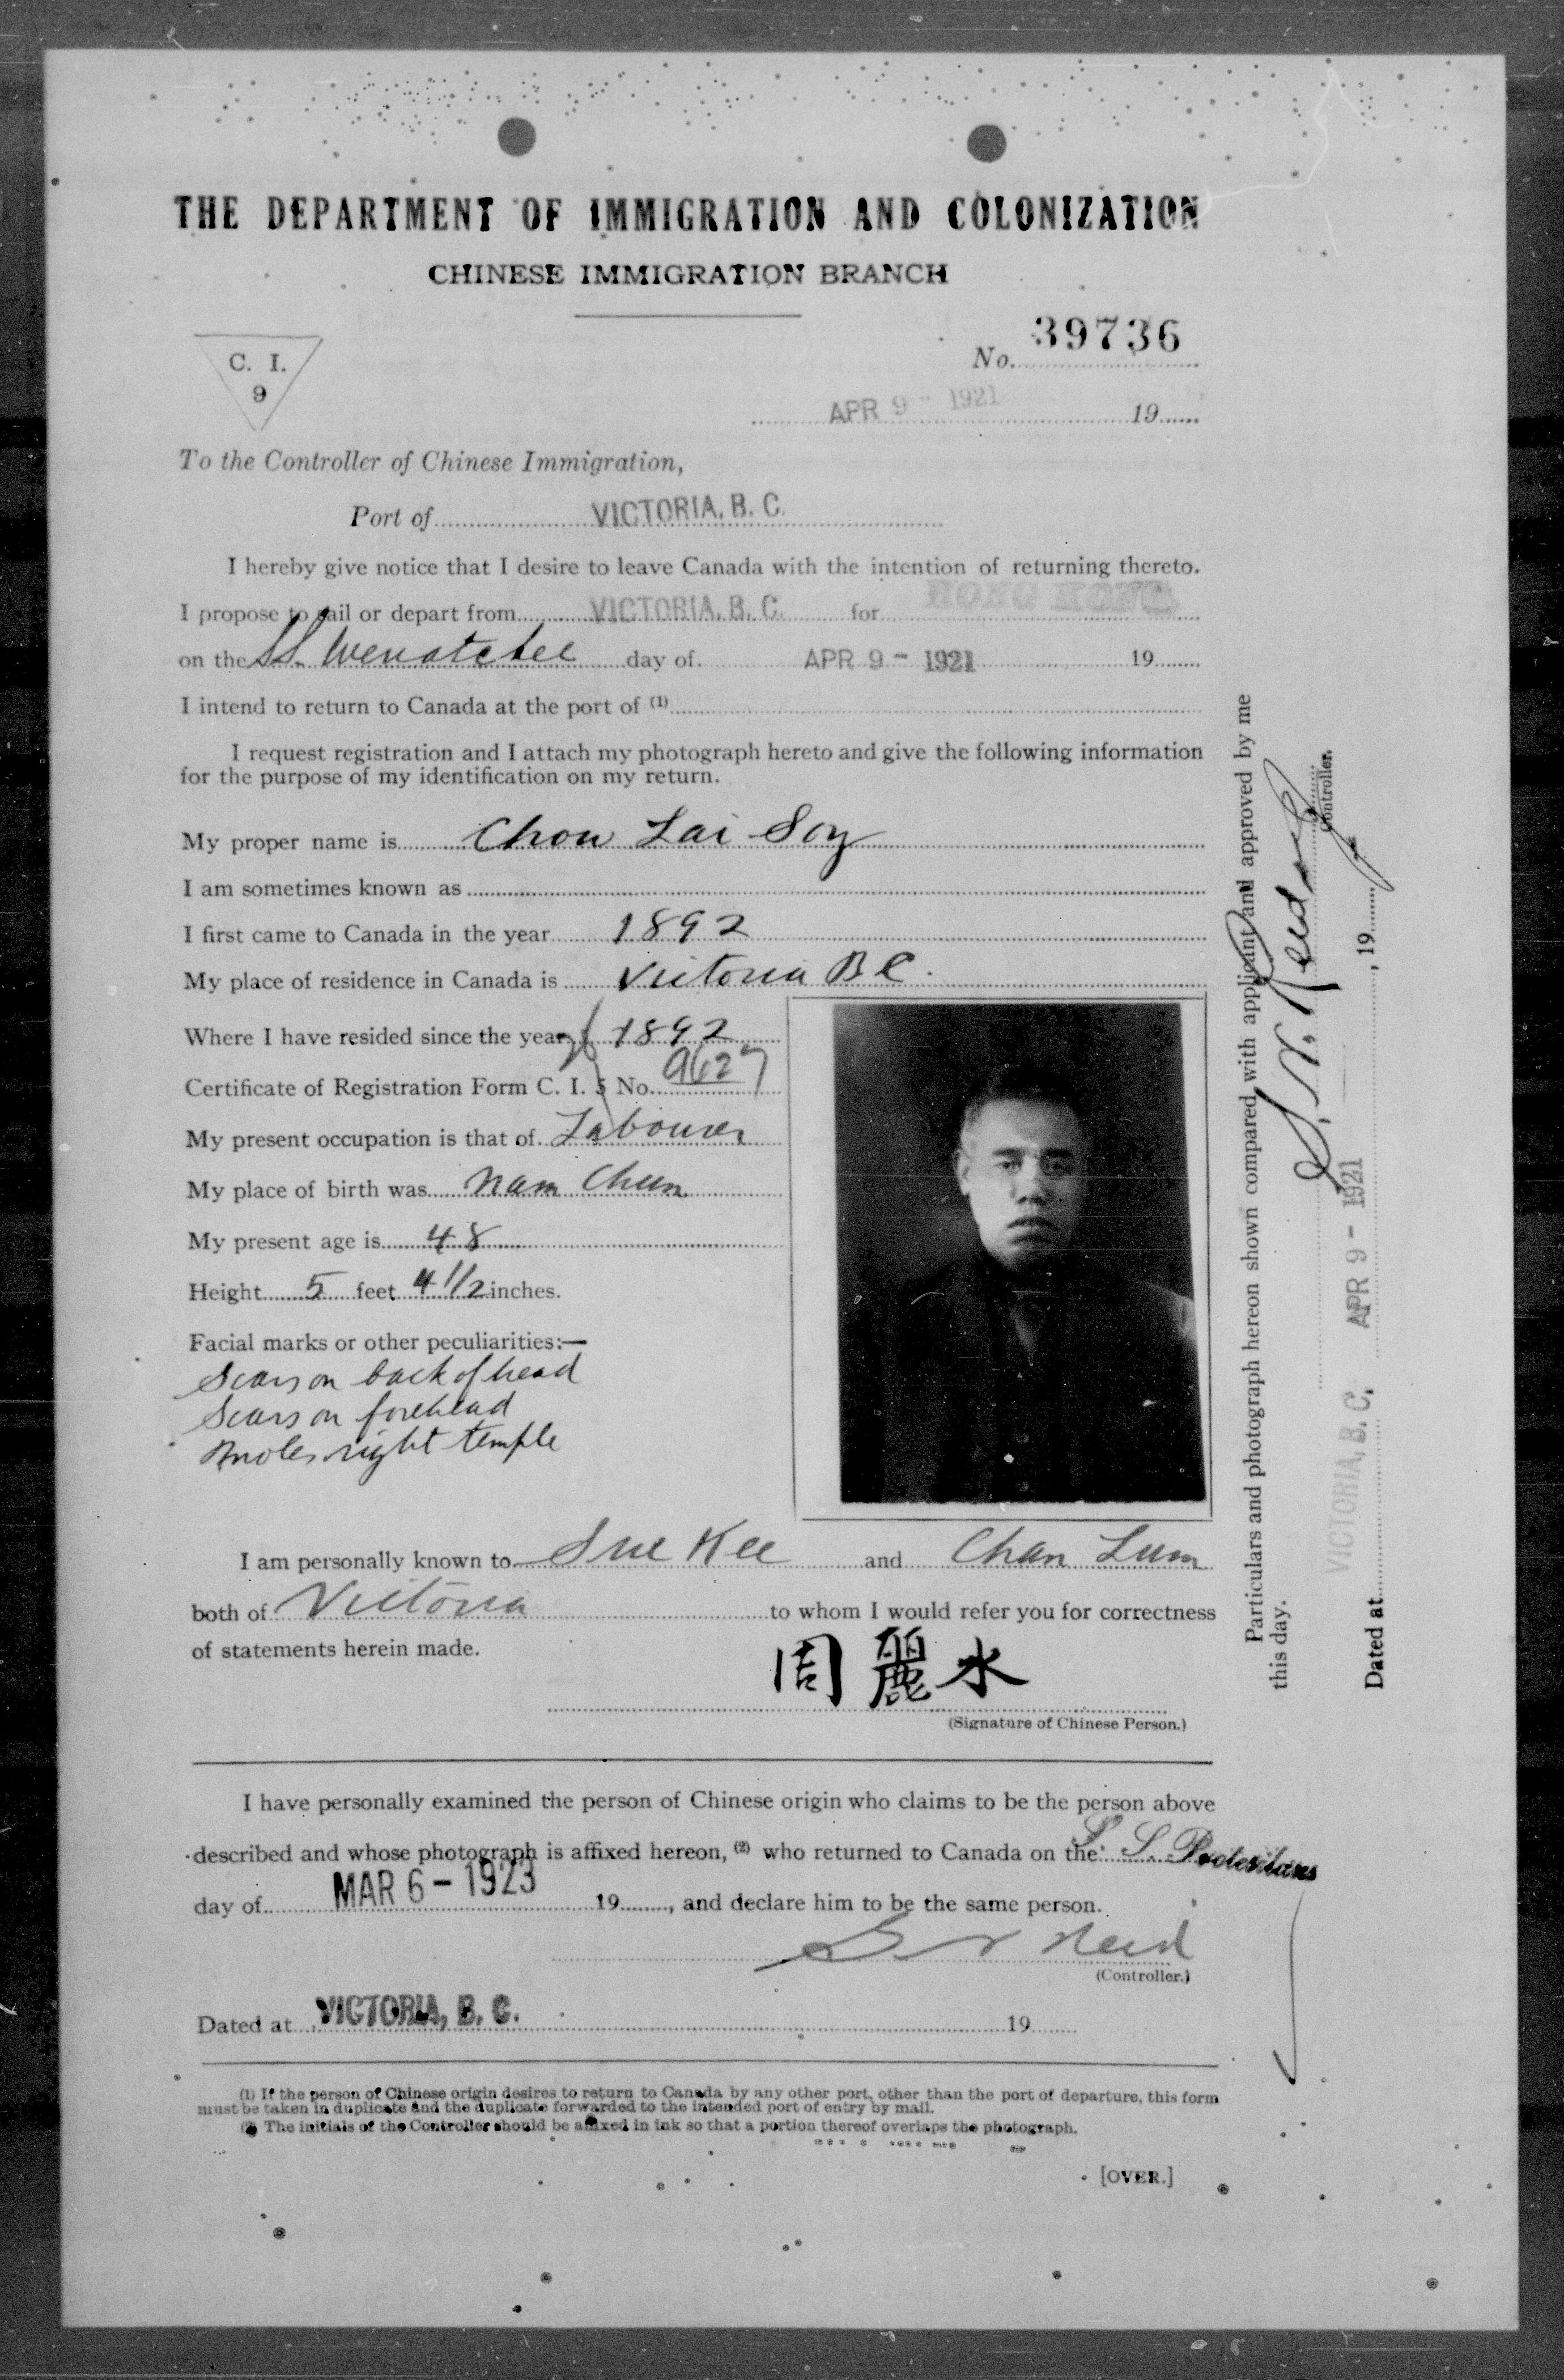 THE DEPARTMENT OF IMMIGRATION AND COLONIZATION
CHINESE IMMIGRATION BRANCH
C. I.
9
No. 39736
APR 9 - 1921 19
To the Controller of Chinese Immigration,
Port of VICTORIA, B. C.
I hereby give notice that I desire to leave Canada with the intention of returning thereto.
I propose to sail or depart from VICTORIA, B. C. for HONG KONG
on the SS. Wenatchee day of APR 9 - 1921 19
I intend to return to Canada at the port of (1)
I request registration and I attach my photograph hereto and give the following information
for the purpose of my identification on my return.
My proper name is Chow Lai Soy
I am sometimes known as
I first came to Canada in the year 1892
My place of residence in Canada is Victoria B C.
Where I have resided since the year 1892
Certificate of Registration Form C. I. 5 No. 9627
My present occupation is that of Labourer
My place of birth was Nam Chun
My present age is 48
Height 5 feet 4 1/2 inches.
Facial marks or other peculiarities:—
Scars on back of head
Scars on forehead
Moles right temple
I am personally known to Sue Kee and Chan Lum
both of Victoria to whom I would refer you for correctness
of statements herein made.
周麗水
(Signature of Chinese Person.)
I have personally examined the person of Chinese origin who claims to be the person above
described and whose photograph is affixed hereon, (2) who returned to Canada on the S. S. Protesilaus
day of MAR 6 - 1923 19, and declare him to be the same person.
(Controller.)
Dated at VICTORIA, B. C. 19
(1) If the person of Chinese origin desires to return to Canada by any other port, other than the port of departure, this form
must be taken in duplicate and the duplicate forwarded to the intended port of entry by mail.
(2) The initials of the Controller should be affixed in ink so that a portion thereof overlaps the photograph.
[OVER.]
Particulars and photograph hereon shown compared with applicant and approved by me
this day.
Controller.
Dated at VICTORIA, B. C. APR 9 - 1921, 19